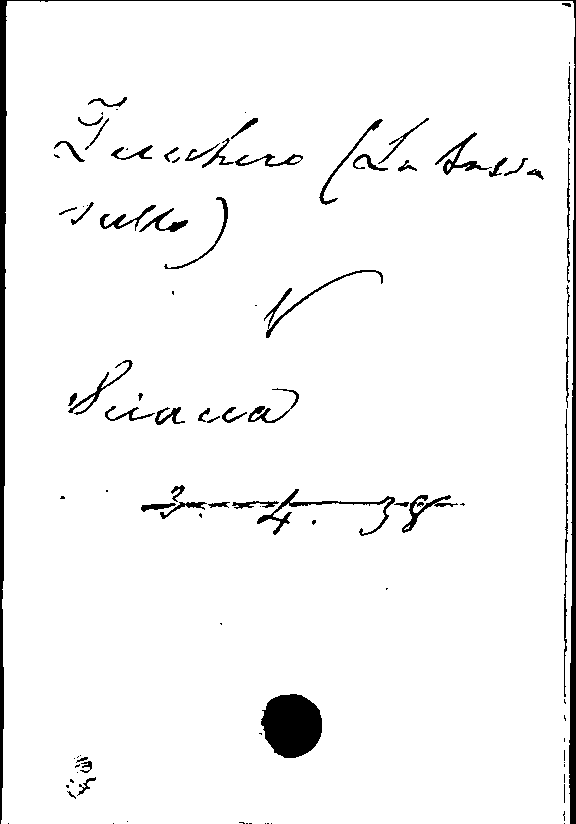 Zucchero (La tassa
sullo)
V
Sciacca
3. 4. 38